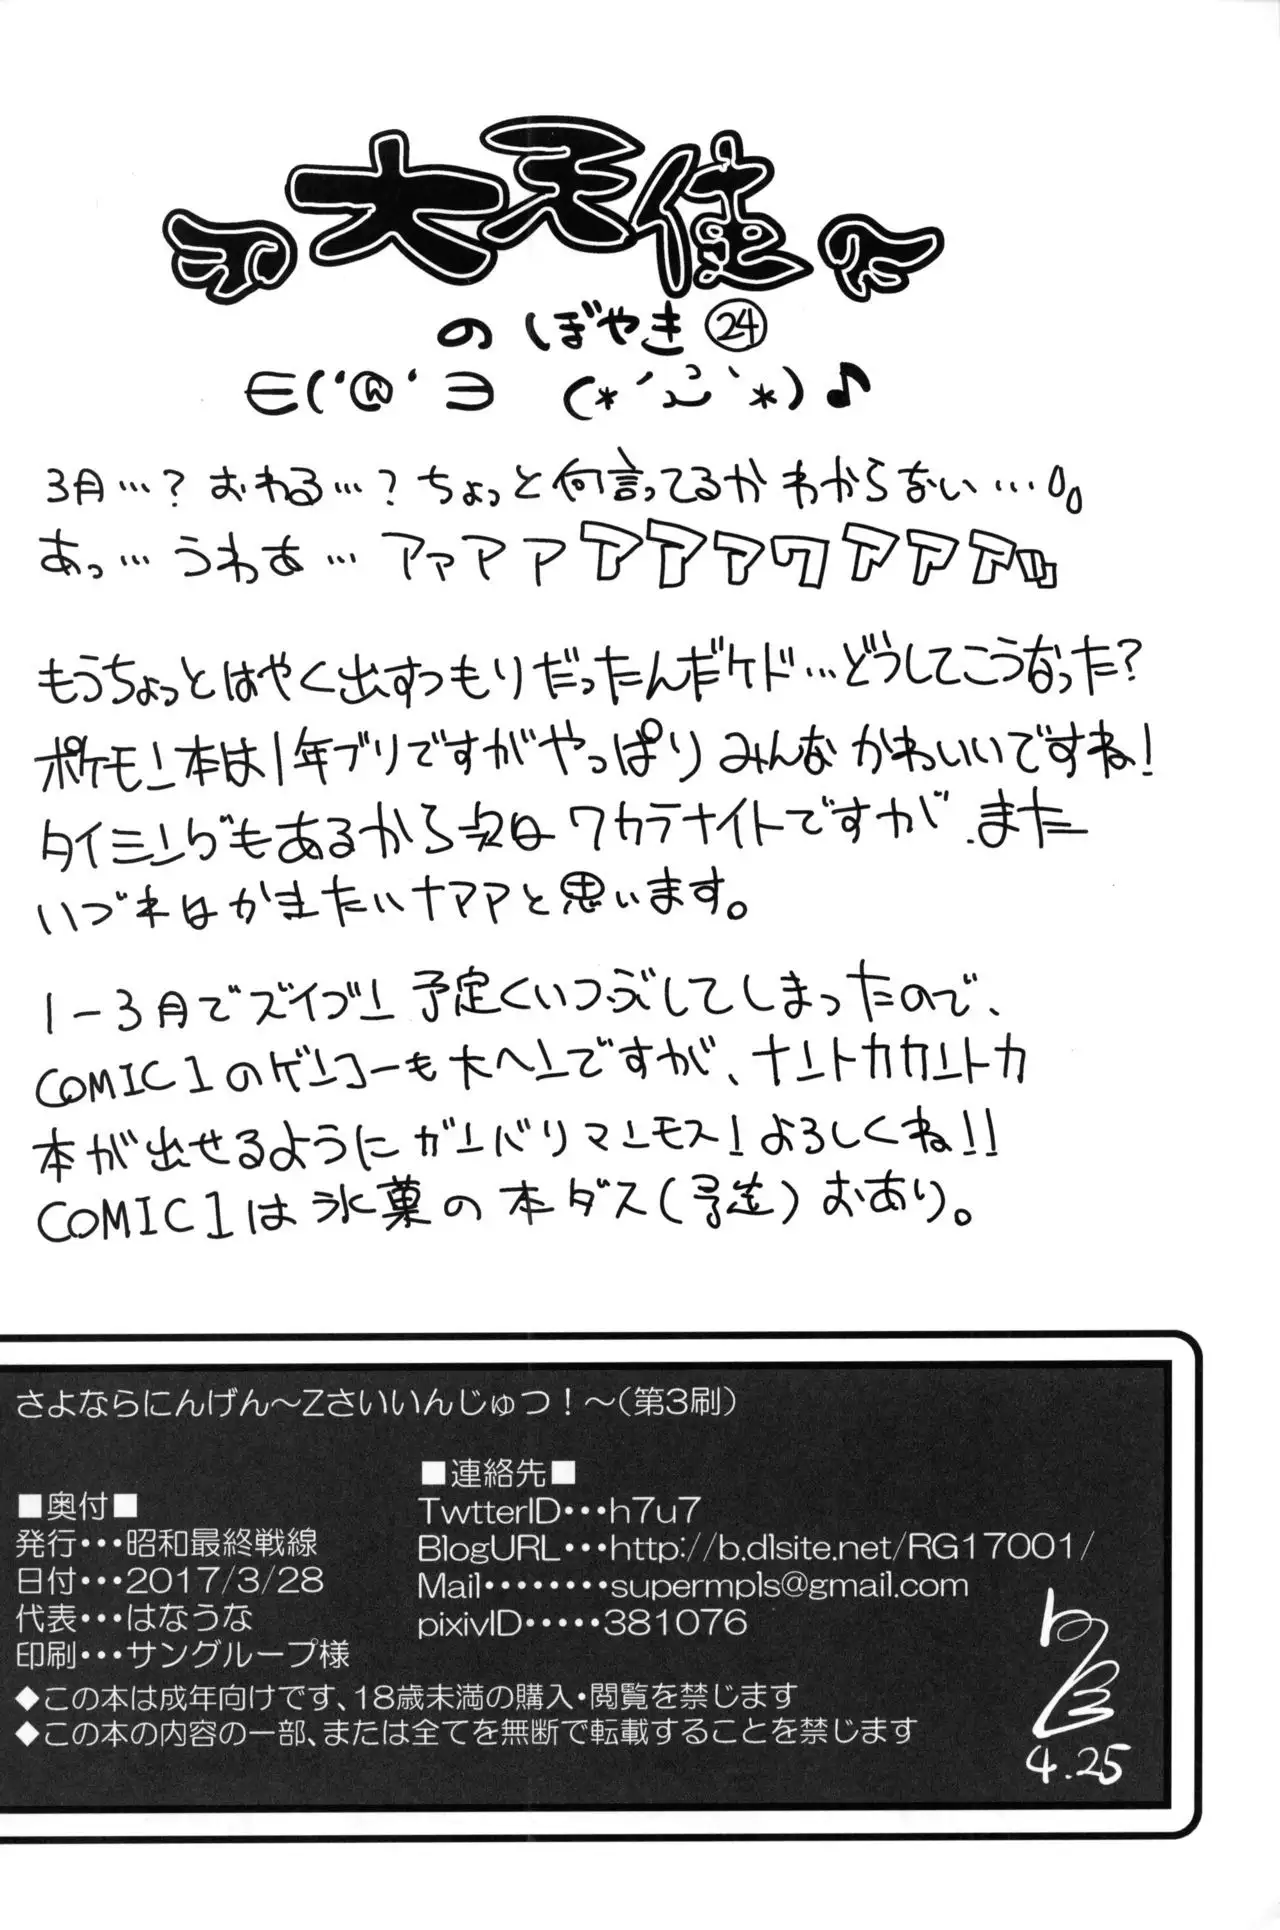 大天使
のぼやき㉔
∈('@'∋ (*´ `*)♪
3月…?おわる…?ちょっと何言ってるかわからない…
あっ…うわぁ…アァアァアアァワアアアッ
もうちょっとはやく出すつもりだったんだケド…どうしてこうなった?
ポケモン本は1年ブリですがやっぱりみんなかわいいですね!
タイミングもあるから次はワカラナイトですが、また
いづれはかきたいナァァと思います。
1-3月でズイブン予定くいつぶしてしまったので、
COMIC1のゲンコーも大ヘンですが、ナントカカントカ
本が出せるようにガンバリマンモス!よろしくね!!
COMIC1は氷菓の本ダス(予定)おあり。
さよならにんげん～Zさいいんじゅつ!～(第3刷)
■奥付■
発行・・・昭和最終戦線
日付・・・2017/3/28
代表・・・はなうな
印刷・・・サングループ様
■連絡先■
TwtterID・・・h7u7
BlogURL・・・http://b.dlsite.net/RG17001/
Mail・・・・・・・・supermpls@gmail.com
pixivID・・・・・381076
◆この本は成年向けです、18歳未満の購入・閲覧を禁じます
◆この本の内容の一部、または全てを無断で転載することを禁じます
4.25